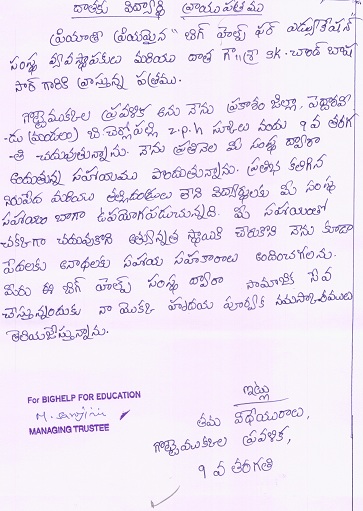 దాతకు విద్యార్థి వ్రాయు పత్రము
ప్రియాతి ప్రియమైన "బిగ్ హెల్ప్ ఫర్ ఎడ్యుకేషన్"
సంస్థ వ్యవస్థాపకులు మరియు దాత గౌ"శ్రీ SK. చాంద్ బాష
సార్ గారికి వ్రాస్తున్న పత్రము.
గొట్టెముక్కల ప్రవళిక అను నేను ప్రకాశం జిల్లా, పెద్దారవీ
-డు (మండలం) బి చెర్లోపల్లి z.p.h స్కూలు నందు 9 వ తరగ
-తి చదువుతున్నాను. నేను ప్రతినెల మీ సంస్థ ద్వారా
అందుతున్న సహాయము పొందుతున్నాను. ప్రతిభ కలిగిన
నిరుపేద మరియు తల్లిదండ్రులు లేని విద్యార్థులకు మీ సంస్థ
సహాయం బాగా ఉపయోగపడుచున్నది. మీ సహాయంతో
చక్కగా చదువుకొని అత్యున్నత స్థాయికి చేరుకొని నేను కూడా
పేదలకు అనాథలకు సహాయ సహకారాలు అందించగలను.
మీరు ఈ బిగ్ హెల్ప్ సంస్థ ద్వారా సామాజిక సేవ
చేస్తున్నందుకు నా యొక్క హృదయ పూర్వక నమస్కారములు
తెలియజేస్తున్నాను.
ఇట్లు
For BIGHELP FOR EDUCATION
తమ విధేయురాలు,
MANAGING TRUSTEE
గొట్టెముక్కల ప్రవళిక,
9 వ తరగతి